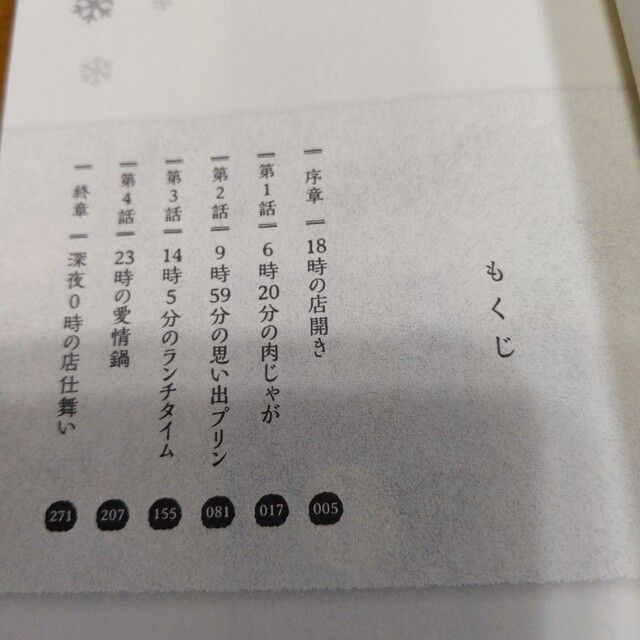 もくじ
序章 18時の店開き 005
第1話 6時20分の肉じゃが 017
第2話 9時59分の思い出プリン 081
第3話 14時5分のランチタイム 155
第4話 23時の愛情鍋 207
終章 深夜0時の店仕舞い 271